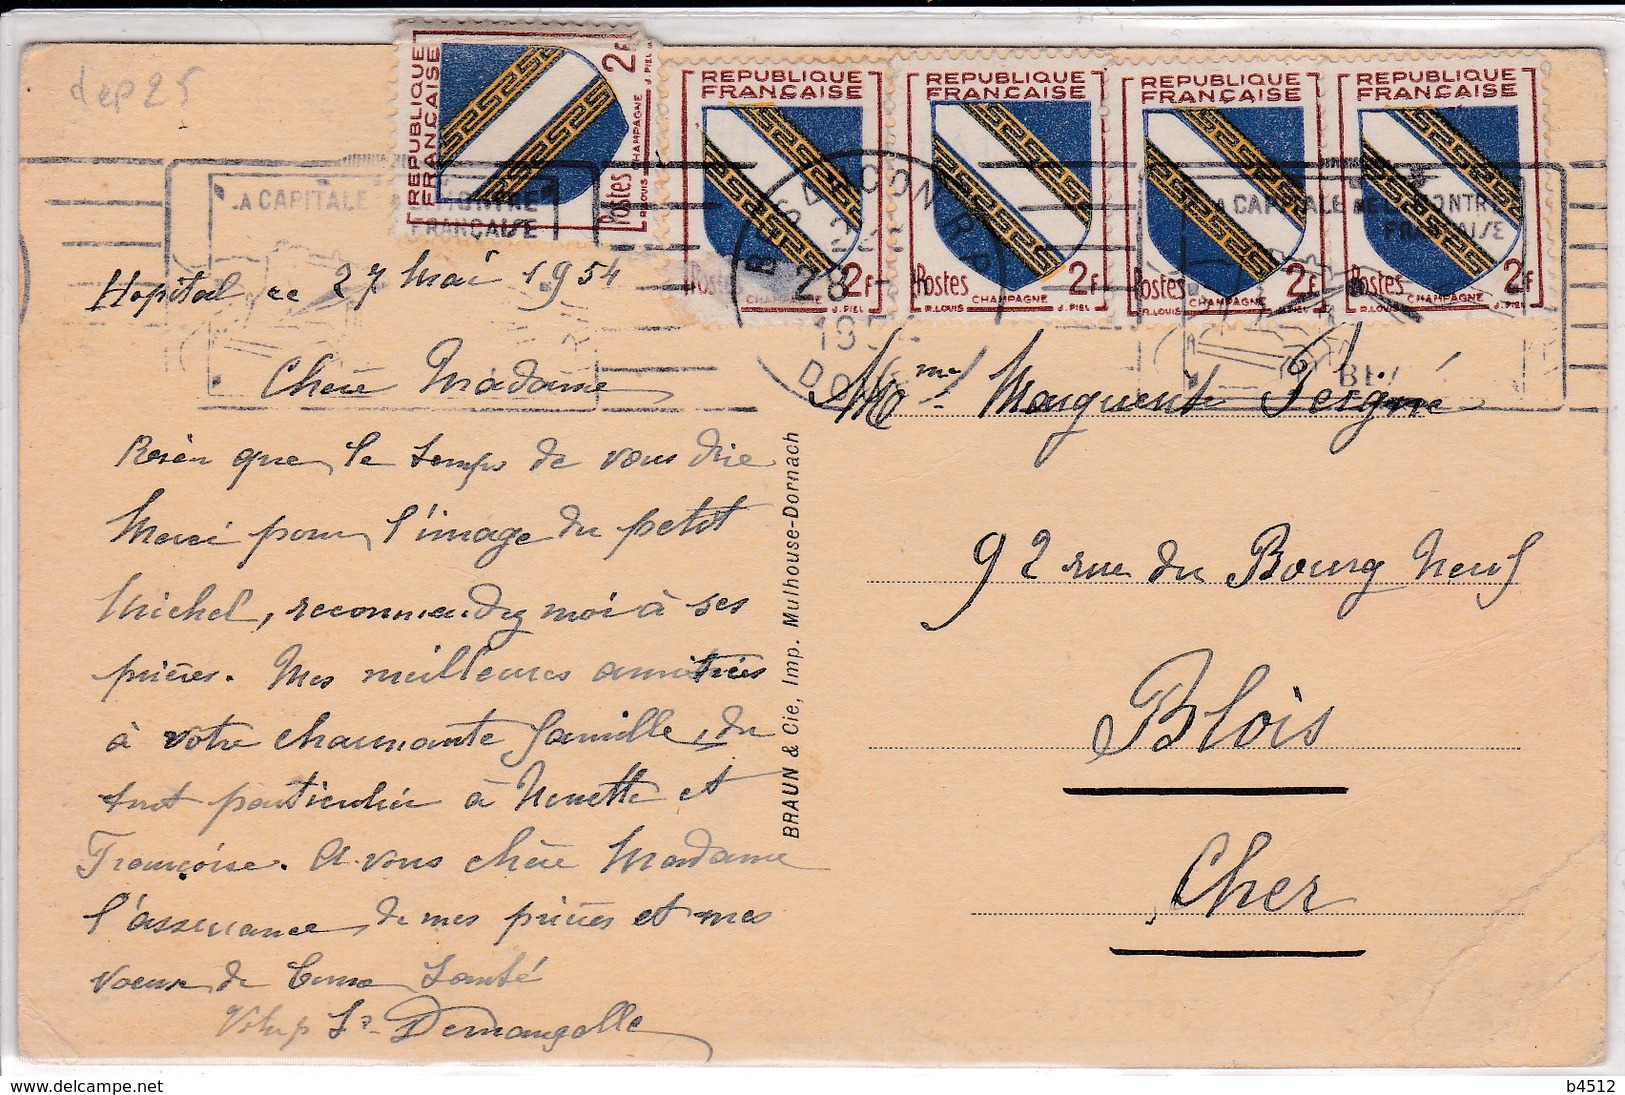 dep 25
REPUBLIQUE FRANÇAISE
2F
Postes
CHAMPAGNE
R.LOUIS J. PIEL
REPUBLIQUE FRANÇAISE
Postes 2F
CHAMPAGNE
J. PIEL
REPUBLIQUE FRANÇAISE
Postes 2F
CHAMPAGNE
R.LOUIS J. PIEL
REPUBLIQUE FRANÇAISE
Postes 2F
CHAMPAGNE
R.LOUIS J. PIEL
REPUBLIQUE FRANÇAISE
Postes 2F
CHAMPAGNE
R.LOUIS J. PIEL
LA CAPITALE DE LA MONTRE
FRANÇAISE
LA CAPITALE DE LA MONTRE
FRANÇAISE
28
195
DOUBS
Hopital ce 27 Mai 1954
Chère Madame
Rien que le temps de vous dire
Merci pour l'image du petit
Michel, recommandez moi à ses
prières. Mes meilleures amitiés
à votre charmante famille, du
tout particulier à Nenette et
Françoise. A vous chère Madame
l'assurance de mes prières et mes
voeux de bonne Santé
Sr Demangelle
BRAUN & Cie, Imp. Mulhouse-Dornach
Mme Marguerite Peigné
92 rue du Bourg Neuf
Blois
Cher
delcampe.net
b4512